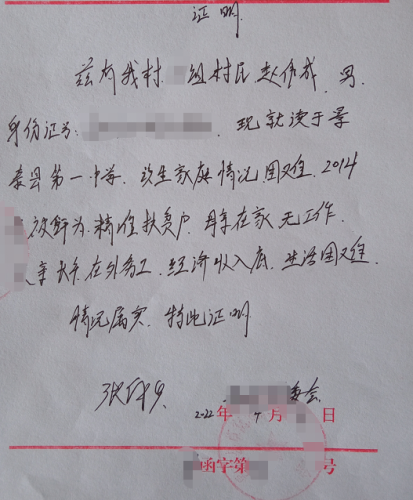 证明
兹有我村 组村民赵伟成，男，
身份证号：，现就读于景
泰县第一中学，该生家庭情况困难，2014
被评为精准扶贫户，母亲在家无工作，
亲长年在外务工，经济收入底，生活困难
情况属实，特此证明
委会
2022年 月 日
函字第 号